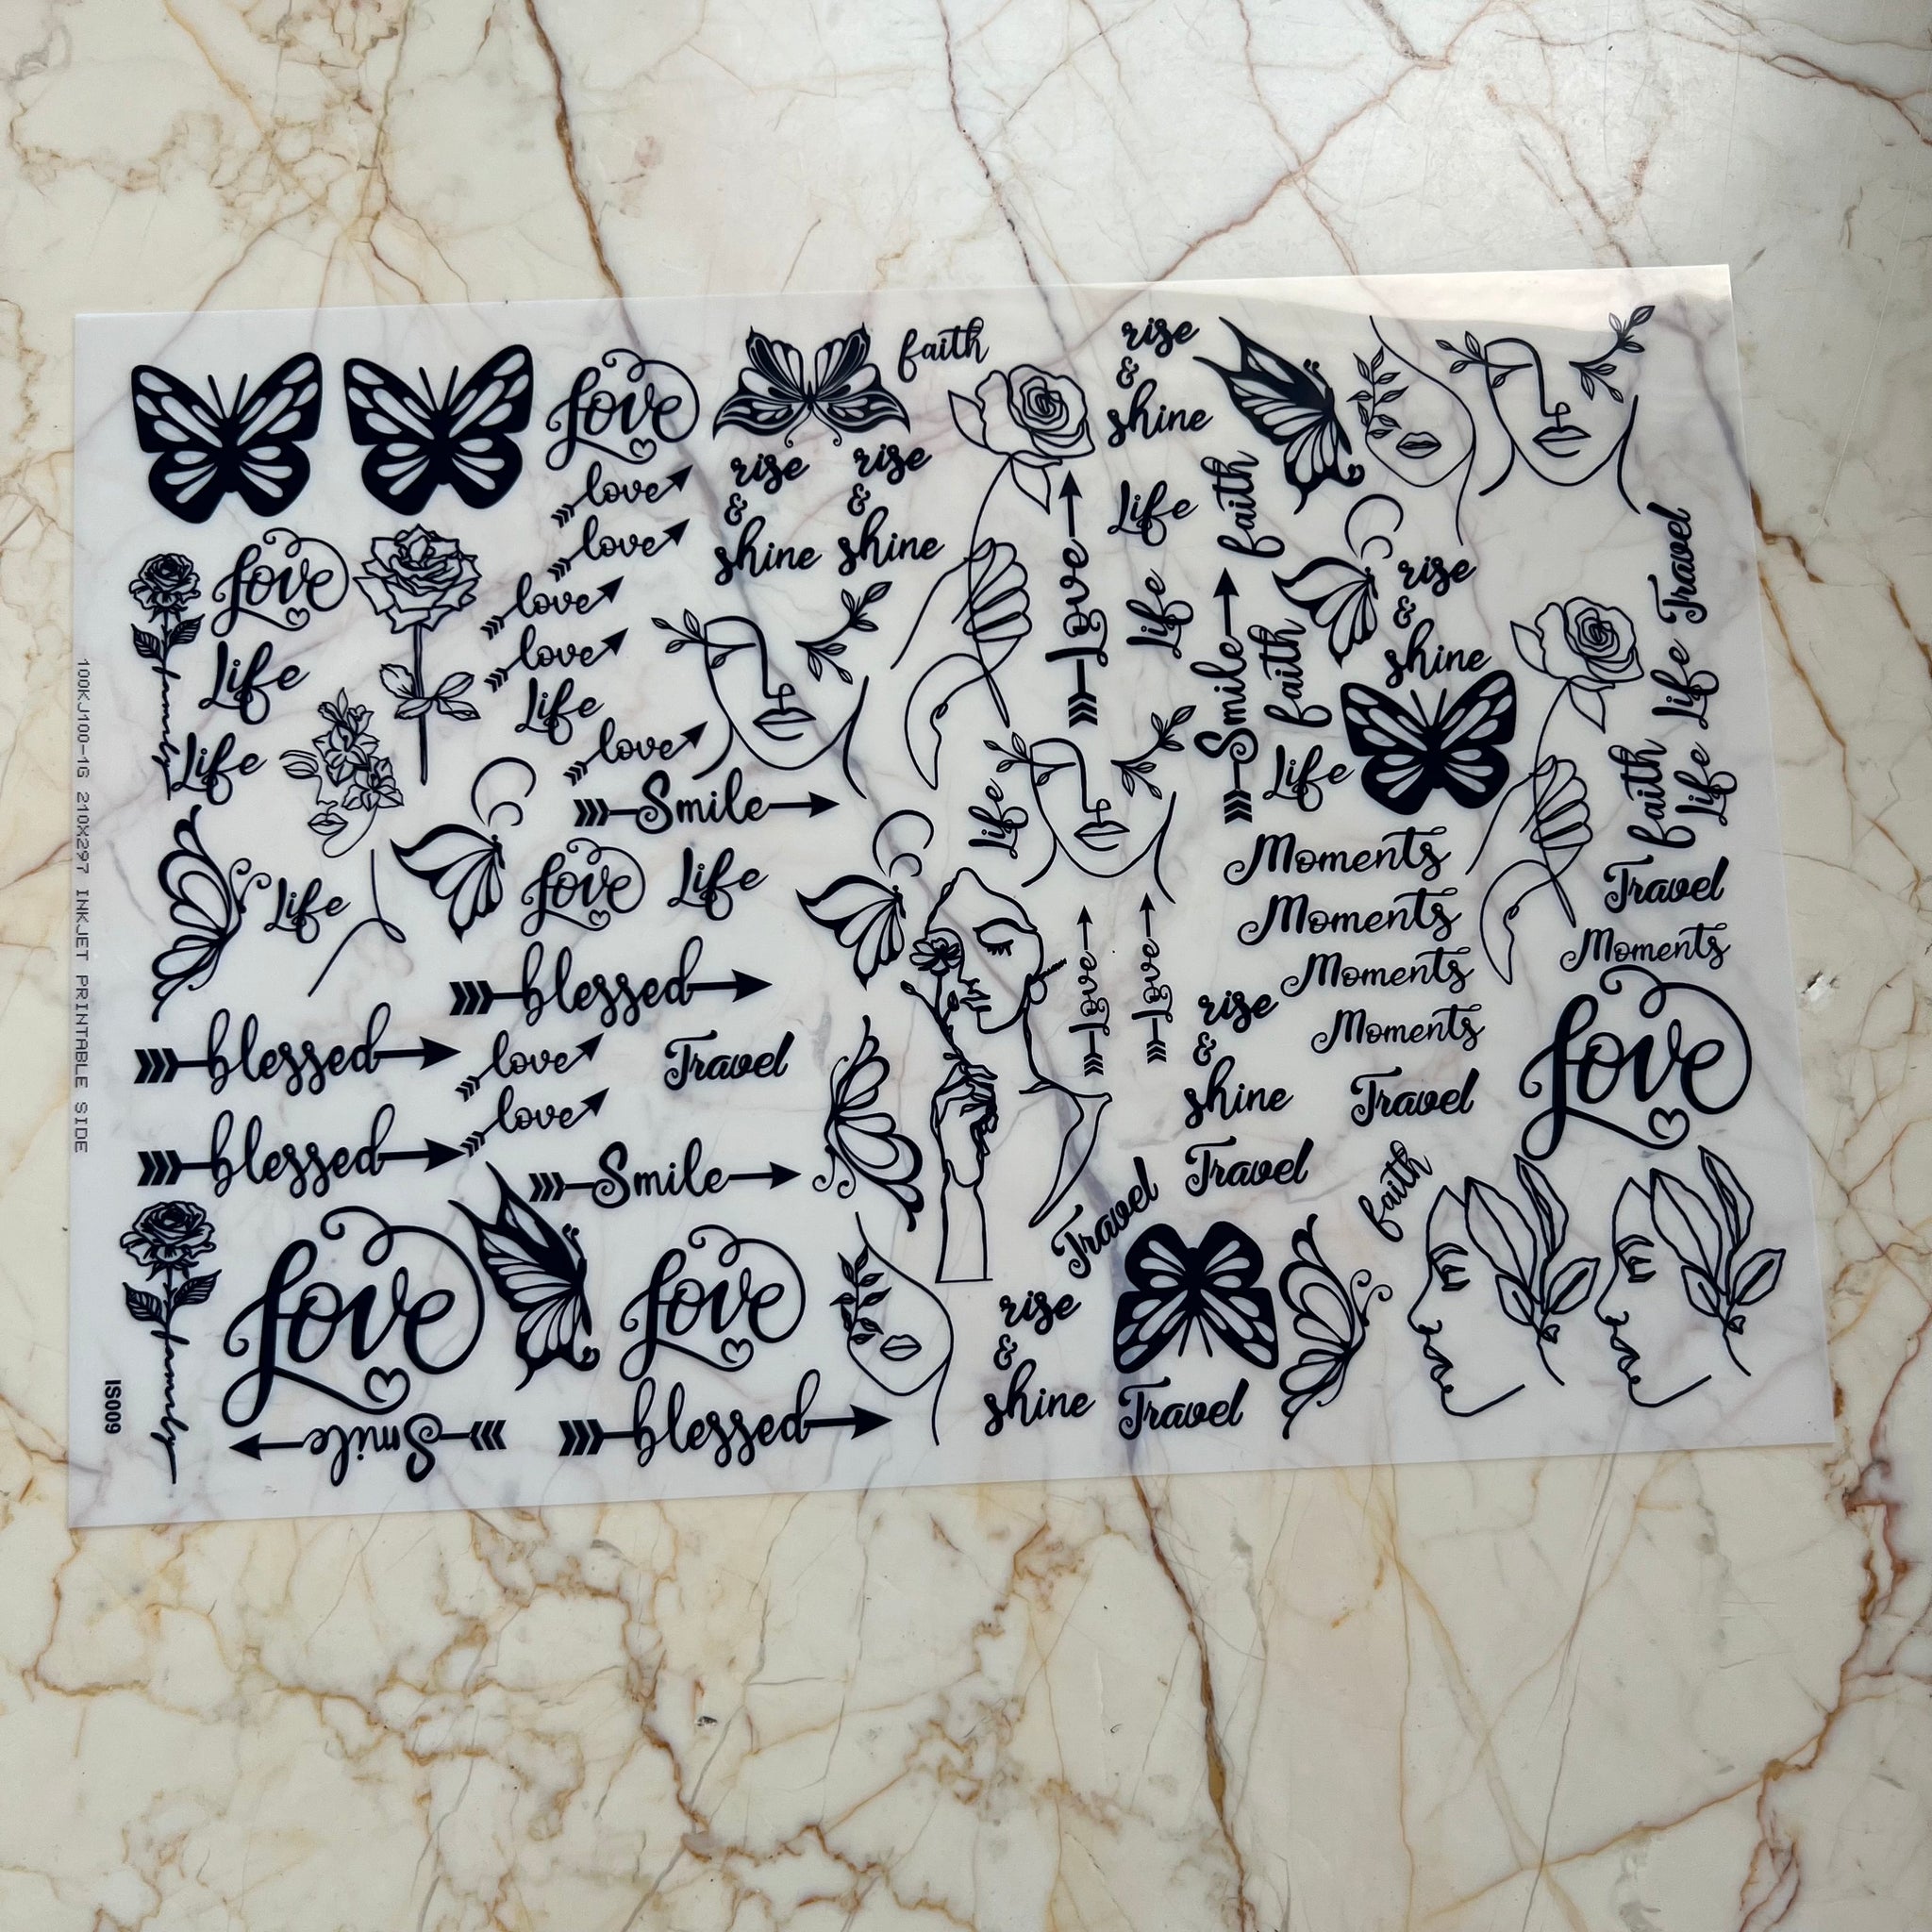 faith
rise
&
shine
Love
love
love
rise
&
shine
rise
&
shine
Life
faith
Love
love
love
Love
Life
rise
&
shine
Travel
Life
family
Life
love
Smile
Smile
faith
Life
Life
Life
faith
Life
Life
Love
Life
Life
Moments
Moments
Moments
Moments
Travel
Moments
blessed
blessed
love
love
Travel
Love
Love
rise
&
shine
Travel
Love
blessed
Smile
Travel
Travel
faith
family
Love
Love
rise
&
shine
Travel
Smile
blessed
100KJ100-1G 210X297 INKJET PRINTABLE SIDE
IS009